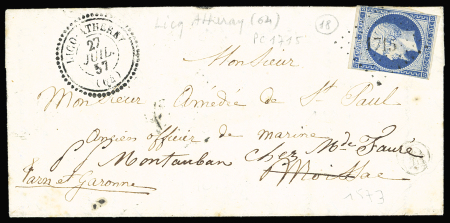 LICQ-ATHEREY
27
JUIL.
57
(64)
Licq Atheray (64)
PC 1715
18
715
Monsieur
Monsieur Amédée de St Paul
ancien officier de marine
Montauban chez Mde Fauré
Moissac
Tarn et Garonne
1573